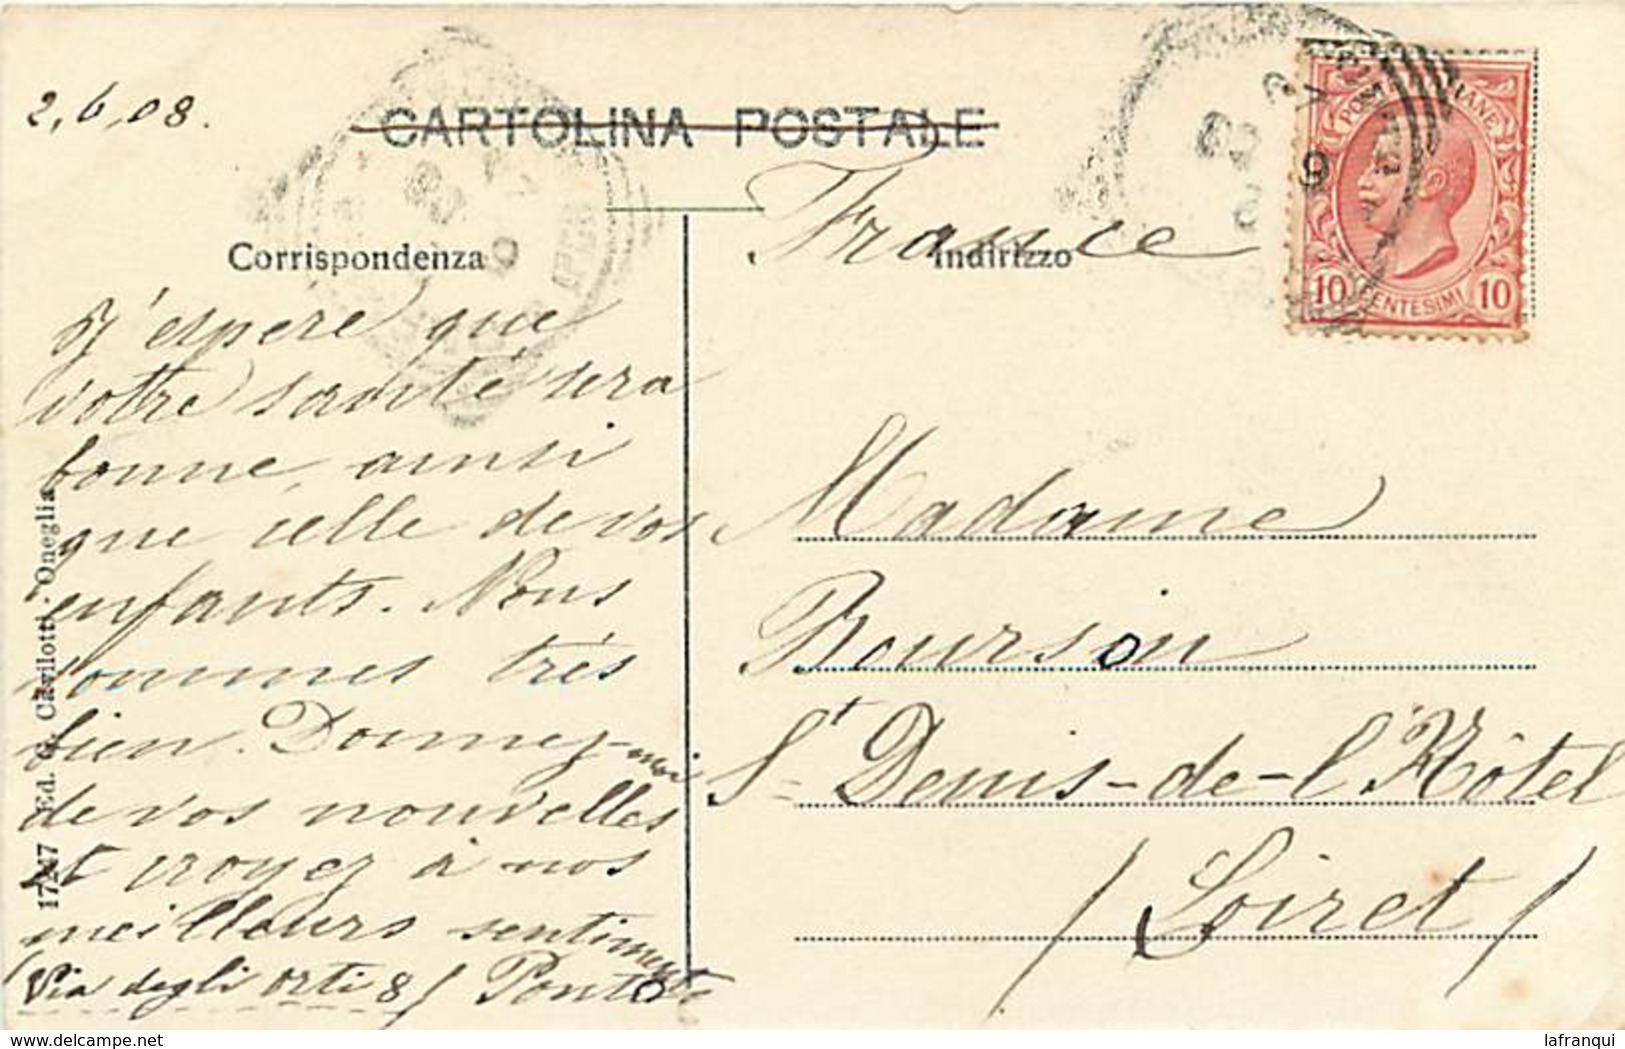 2,6,08.
CARTOLINA POSTALE
Corrispondenza
Indirizzo
France
POSTE ITALIANE
10 CENTESIMI 10
J'espere que
votre santé sera
bonne, ainsi
que celle de vos
enfants. Nous
sommes très
bien. Donnez-moi
de vos nouvelles
et croyez à nos
meilleurs sentiments
(Via degli orti 8)
Madame
Bourson
St Denis-de-l'Hôtel
(Loiret)
Ed. G. Cavilotti. Oneglia
lafranqui
delcampe.net